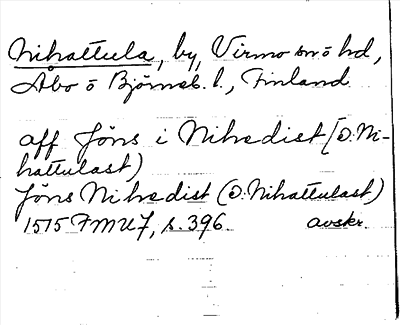 Nihattula, by, Virmo sn o hd,
Åbo o Björneb. l., Finland
aff Jöns i Nihredist [ɔ: Ni-
hattulast)
Jöns Nihredist (ɔ: Nihattulast)
1515 FMU 7, s. 396. avskr.